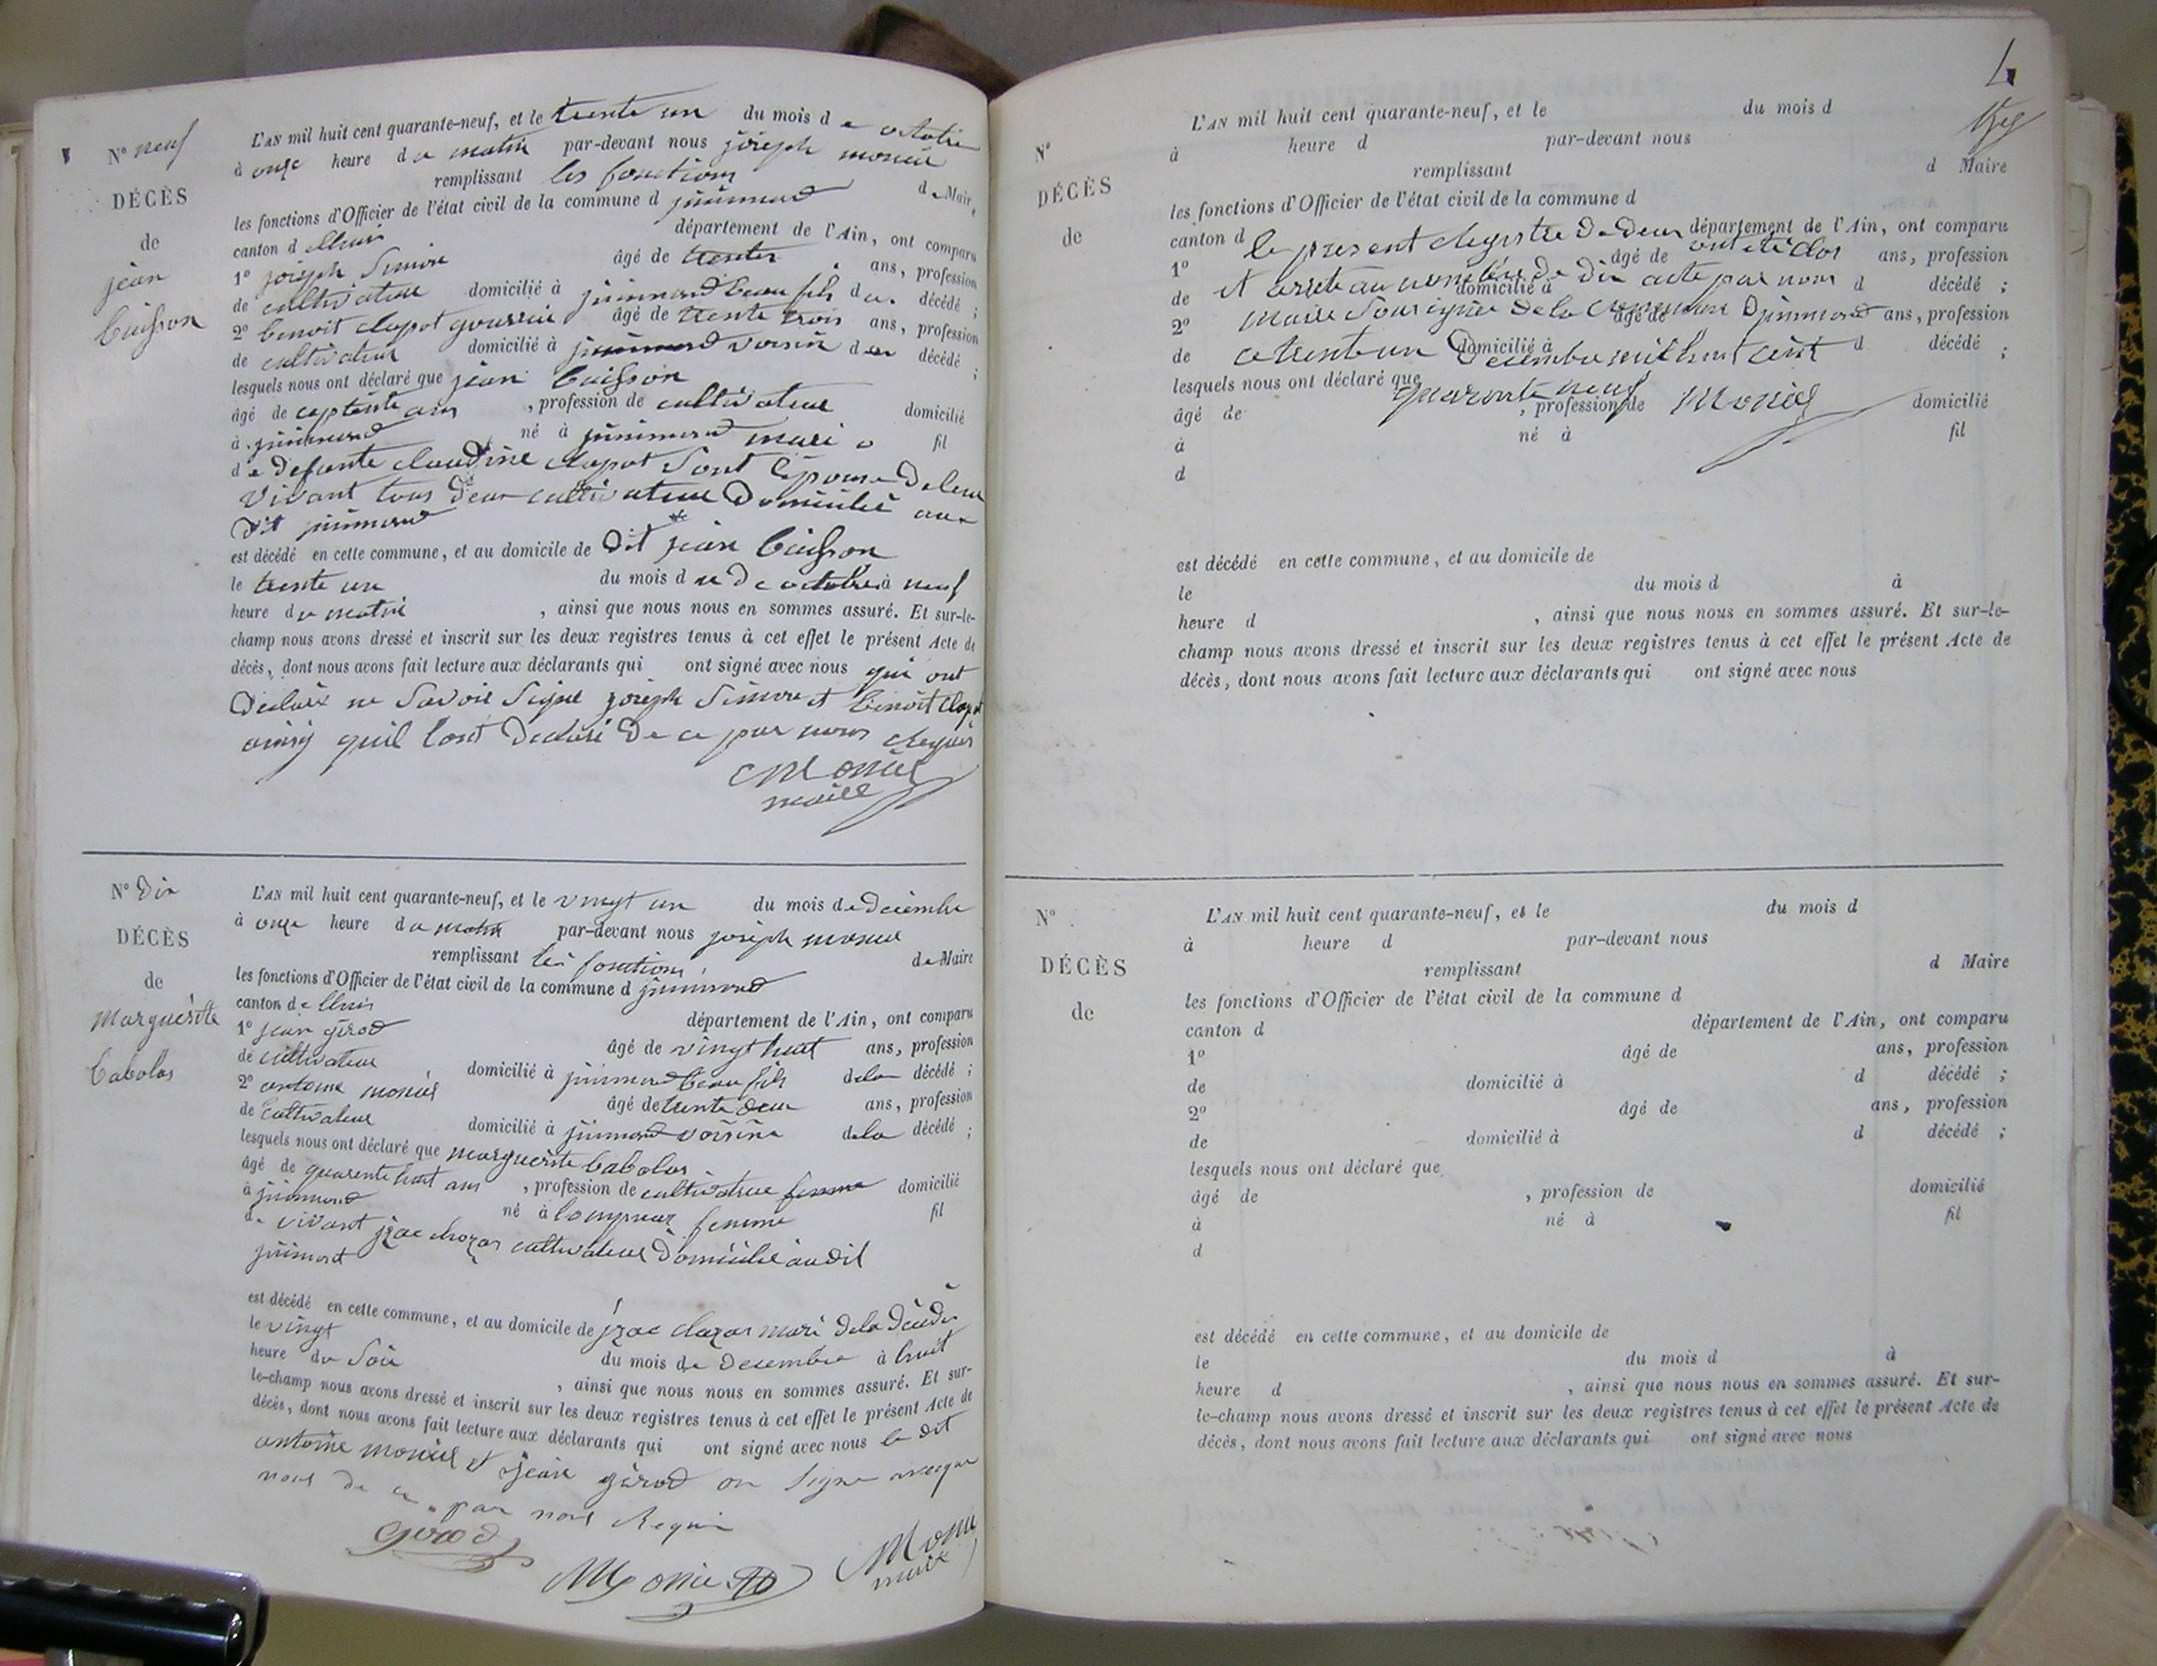 N° neuf
DÉCÈS
de
jean
buisson
L'AN mil huit cent quarante-neuf, et le trente un du mois de octobre
à onze heure du matin par-devant nous joseph monier
remplissant les fonctions de Maire
les fonctions d'Officier de l'état civil de la commune d jujurieux
canton d lhuis département de l'Ain, ont comparu
1° joseph Simon âgé de trente ans, profession
de cultivateur domicilié à beau fils du décédé ;
2° benoit clapot âgé de trente trois ans, profession
de cultivateur domicilié à voisin du décédé ;
lesquels nous ont déclaré que jean buisson
âgé de ans , profession de cultivateur domicilié
à né à mari fil
de defunte claudine clapot Sont épouse de leur
vivant tous deux cultivateur domicilié au
dit
est décédé en cette commune, et au domicile de dit jean buisson
le trente un du mois d de octobre à neuf
heure du matin , ainsi que nous nous en sommes assuré. Et sur-le-
champ nous avons dressé et inscrit sur les deux registres tenus à cet effet le présent Acte de
décès, dont nous avons fait lecture aux déclarants qui ont signé avec nous qui ont
declaré ne Savoir Signe joseph Simon et benoit clapot
ainsy quil lont declaré de ce par nous requis
Monier
maire
N° dix
DÉCÈS
de
marguerite
babolas
L'AN mil huit cent quarante-neuf, et le vingt un du mois de decembre
à onze heure du matin par-devant nous joseph monier
remplissant les fonctions de Maire
les fonctions d'Officier de l'état civil de la commune d
canton de lhuis département de l'Ain, ont comparu
1° jean girod âgé de vingt huit ans, profession
de cultivateur domicilié à beau fils de la décédé ;
2° antoine monier âgé de trente deux ans, profession
de cultivateur domicilié à voisine de la décédé ;
lesquels nous ont déclaré que marguerite babolas
âgé de quarente huit ans , profession de cultivatrice femme domicilié
à né à femme fil
de vivant cultivateur domicilié audit
est décédé en cette commune, et au domicile de mari de la décédé
le vingt du mois de desembre à huit
heure du Soir , ainsi que nous nous en sommes assuré. Et sur-
le-champ nous avons dressé et inscrit sur les deux registres tenus à cet effet le présent Acte de
décès, dont nous avons fait lecture aux déclarants qui ont signé avec nous le dit
antoine monier et jean girod on Signe avecque
nous de ce par nous Requis
Girod
Monier
Monier
maire
4
N°
DÉCÈS
de
L'AN mil huit cent quarante-neuf, et le du mois d
à heure d par-devant nous
remplissant d Maire
les fonctions d'Officier de l'état civil de la commune d
canton d département de l'Ain, ont comparu
le present Registre de deces ont eté clos
1° âgé de ans, profession
et arreté au nombre de dix acte par nous
de domicilié à d décédé ;
maire Sousigné de la commune
2° âgé de ans, profession
ce trente un desembre mil huit cent
de domicilié à d décédé ;
lesquels nous ont déclaré que
quarante neuf Monier
âgé de , profession de domicilié
à né à fil
d
est décédé en cette commune, et au domicile de
le du mois d à
heure d , ainsi que nous nous en sommes assuré. Et sur-le-
champ nous avons dressé et inscrit sur les deux registres tenus à cet effet le présent Acte de
décès, dont nous avons fait lecture aux déclarants qui ont signé avec nous
N°
DÉCÈS
de
L'AN mil huit cent quarante-neuf, et le du mois d
à heure d par-devant nous
remplissant d Maire
les fonctions d'Officier de l'état civil de la commune d
canton d département de l'Ain, ont comparu
1° âgé de ans, profession
de domicilié à d décédé ;
2° âgé de ans, profession
de domicilié à d décédé ;
lesquels nous ont déclaré que
âgé de , profession de domicilié
à né à fil
d
est décédé en cette commune, et au domicile de
le du mois d à
heure d , ainsi que nous nous en sommes assuré. Et sur-
le-champ nous avons dressé et inscrit sur les deux registres tenus à cet effet le présent Acte de
décès, dont nous avons fait lecture aux déclarants qui ont signé avec nous